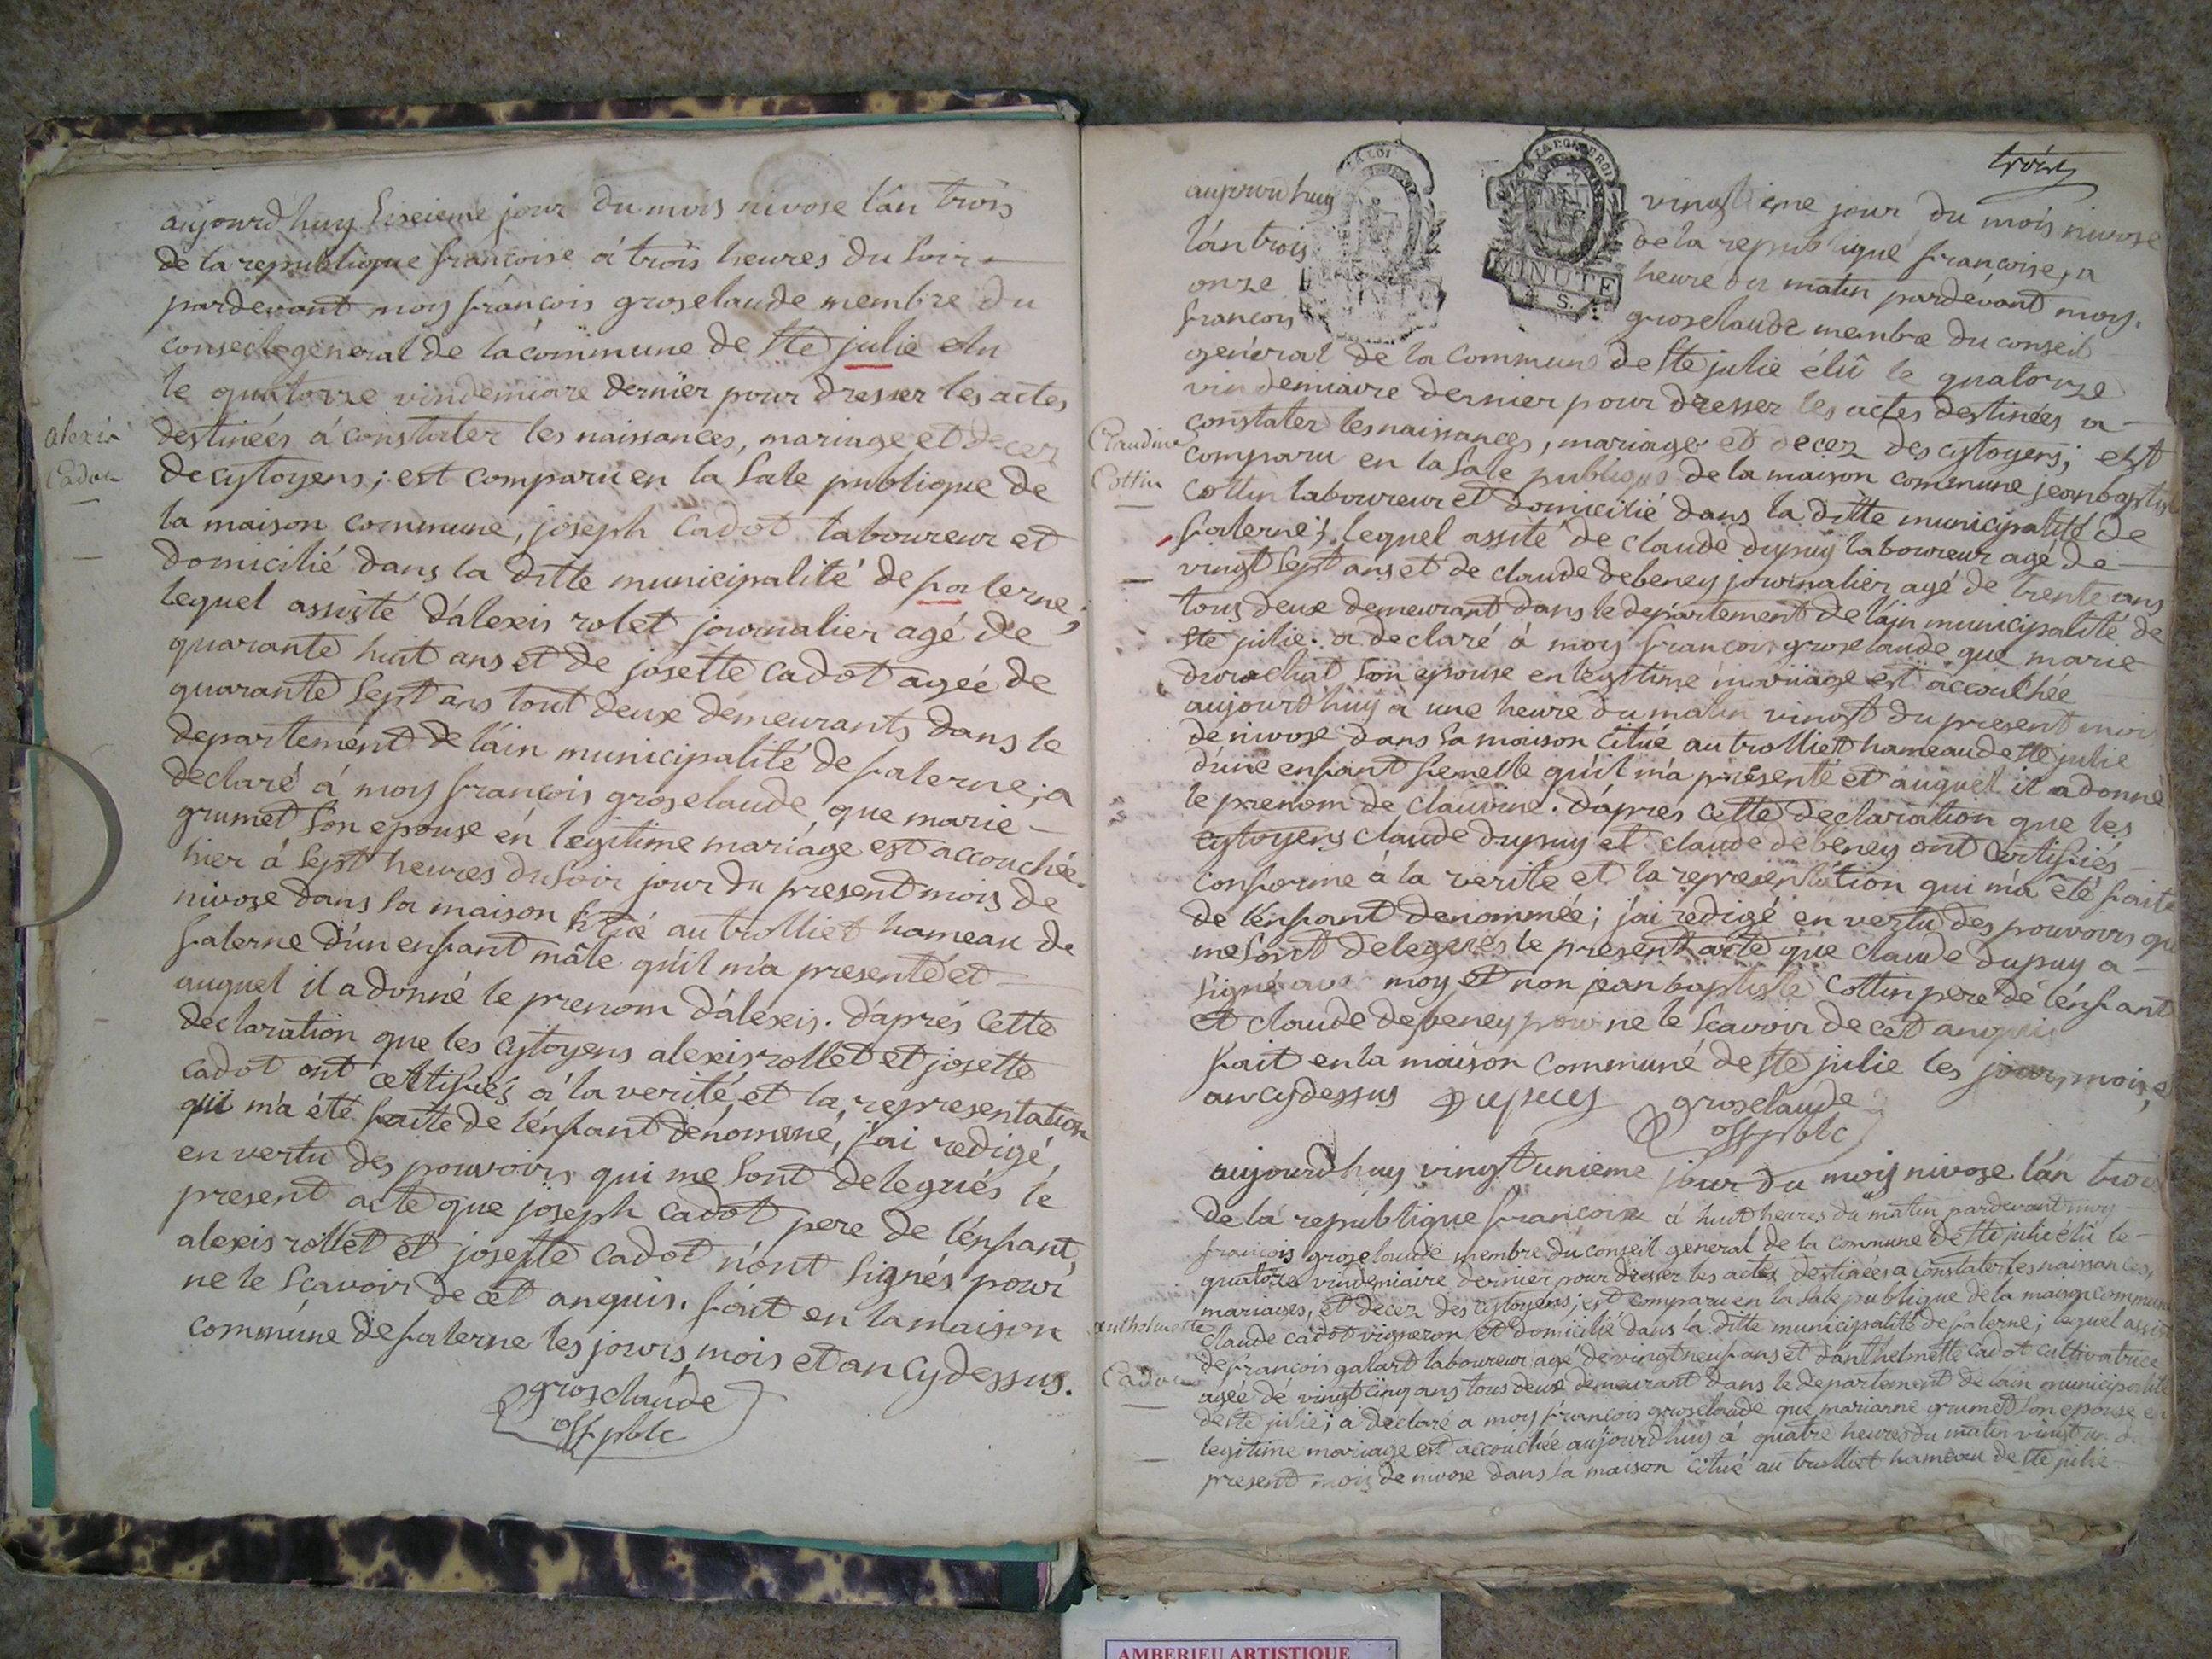 aujourdhuy sixieme jour du mois nivose l'an trois
de la republique françoise à trois heures du soir
pardevant moy françois groselaude membre du
conseile general de la commune de ste julie elu
le quatorze vindemiare dernier pour dresser les actes
destinées à constater les naissances, mariage et decez
de cytoyens; est comparu en la sale publique de
la maison commune, joseph cadot laboureur et
domicilié dans la ditte municipalité de falerne;
lequel assisté d'alexis rolet journalier agé de
quarante huit ans et de josette cadot agée de
quarante sept ans tout deux demeurants dans le
departement de l'ain municipalité de falerne; a
declaré à moy françois groselaude que marie
grumet son epouse en legitime mariage est accouchée
hier à sept heures du soir jour du present mois de
nivoze dans sa maison situé au trolliet hameau de
falerne d'un enfant mâle qu'il m'a presenté et
auquel il a donné le prenom d'alexis. d'aprés cette
declaration que les cytoyens alexis rollet et josette
cadot ont certifiés à la verité et la representation
qui m'a été faite de l'enfant dénommé, j'ai redigé
en vertu des pouvoirs qui me sont delegués le
present acte que joseph cadot pere de l'enfant,
alexis rollet et josette cadot n'ont signés pour
ne le scavoir de cet anquis. fait en la maison
commune de falerne les jours, mois et an cydessus.
groselaude
off pblc
alexis
Cadot
trois
LA LOI
MINUTE
S.
aujourdhuy vingtieme jour du mois nivoze
l'an trois de la republique françoise, a
onze heure du matin pardevant moy
françois groselaude membre du conseil
general de la commune de ste julie élû le quatorze
vindemiaire dernier pour dresser les actes destinées a
constater les naissances, mariage et decez des cytoyens; est
comparu en la sale publique de la maison commune jean baptiste
cottin laboureur et domicilié dans la ditte municipalité de
falerne; lequel assité de claude dupuy laboureur agé de
vingt sept ans et de claude debeney journalier agé de trente ans
tous deux demeurant dans le departement de l'ain municipalité de
ste julie. a declaré à moy françois groselaude que marie
son epouse en legitime mariage est accouchée
aujourdhuy a une heure du matin vingt du present mois
de nivose dans sa maison citué au trolliet hameau de ste julie
d'une enfant femelle qu'il m'a presenté et auquel il a donné
le prenom de claudine. d'aprés cette declaration que les
cytoyens claude dupuy et claude debeney ont certifiés
conforme à la verite et la representation qui m'a été faite
de l'enfant denommée; j'ai redigé en vertu des pouvoirs qui
me sont delegués le present acte que claude dupuy a
signé avec moy et non jean baptiste cottin pere de l'enfant
et claude debeney pour ne le scavoir de cet anquis
fait en la maison commune de ste julie les jour, mois, et
an cydessus dupuy groselaude
off pblc
Claudine
Cottin
aujourdhuy vingt unieme jour du mois nivoze l'an trois
de la republique françoise à huit heures du matin pardevant moy
françois groselaude membre du conseil general de la commune de ste julie élû le
quatorze vindemiaire dernier pour dresser les actes destinées a constater les naissances,
mariages, et decez des cytoyens; est comparu en la sale publique de la maison commune
claude cadot vigneron et domicilié dans la ditte municipalité de falerne; lequel assisté
de françois galart laboureur agé de vingt neuf ans et d'anthelmette cadot cultivatrice
agée de vingt cinq ans tous deux demeurant dans le departement de l'ain municipalité
de ste julie; a declaré a moy françois groselaude que marianne grumet son epouse en
legitime mariage est accouchée aujourdhuy a quatre heures du matin vingt un du
present mois de nivose dans sa maison citué au trolliet hameau de ste julie
Cadot
AMBERIEU ARTISTIQUE